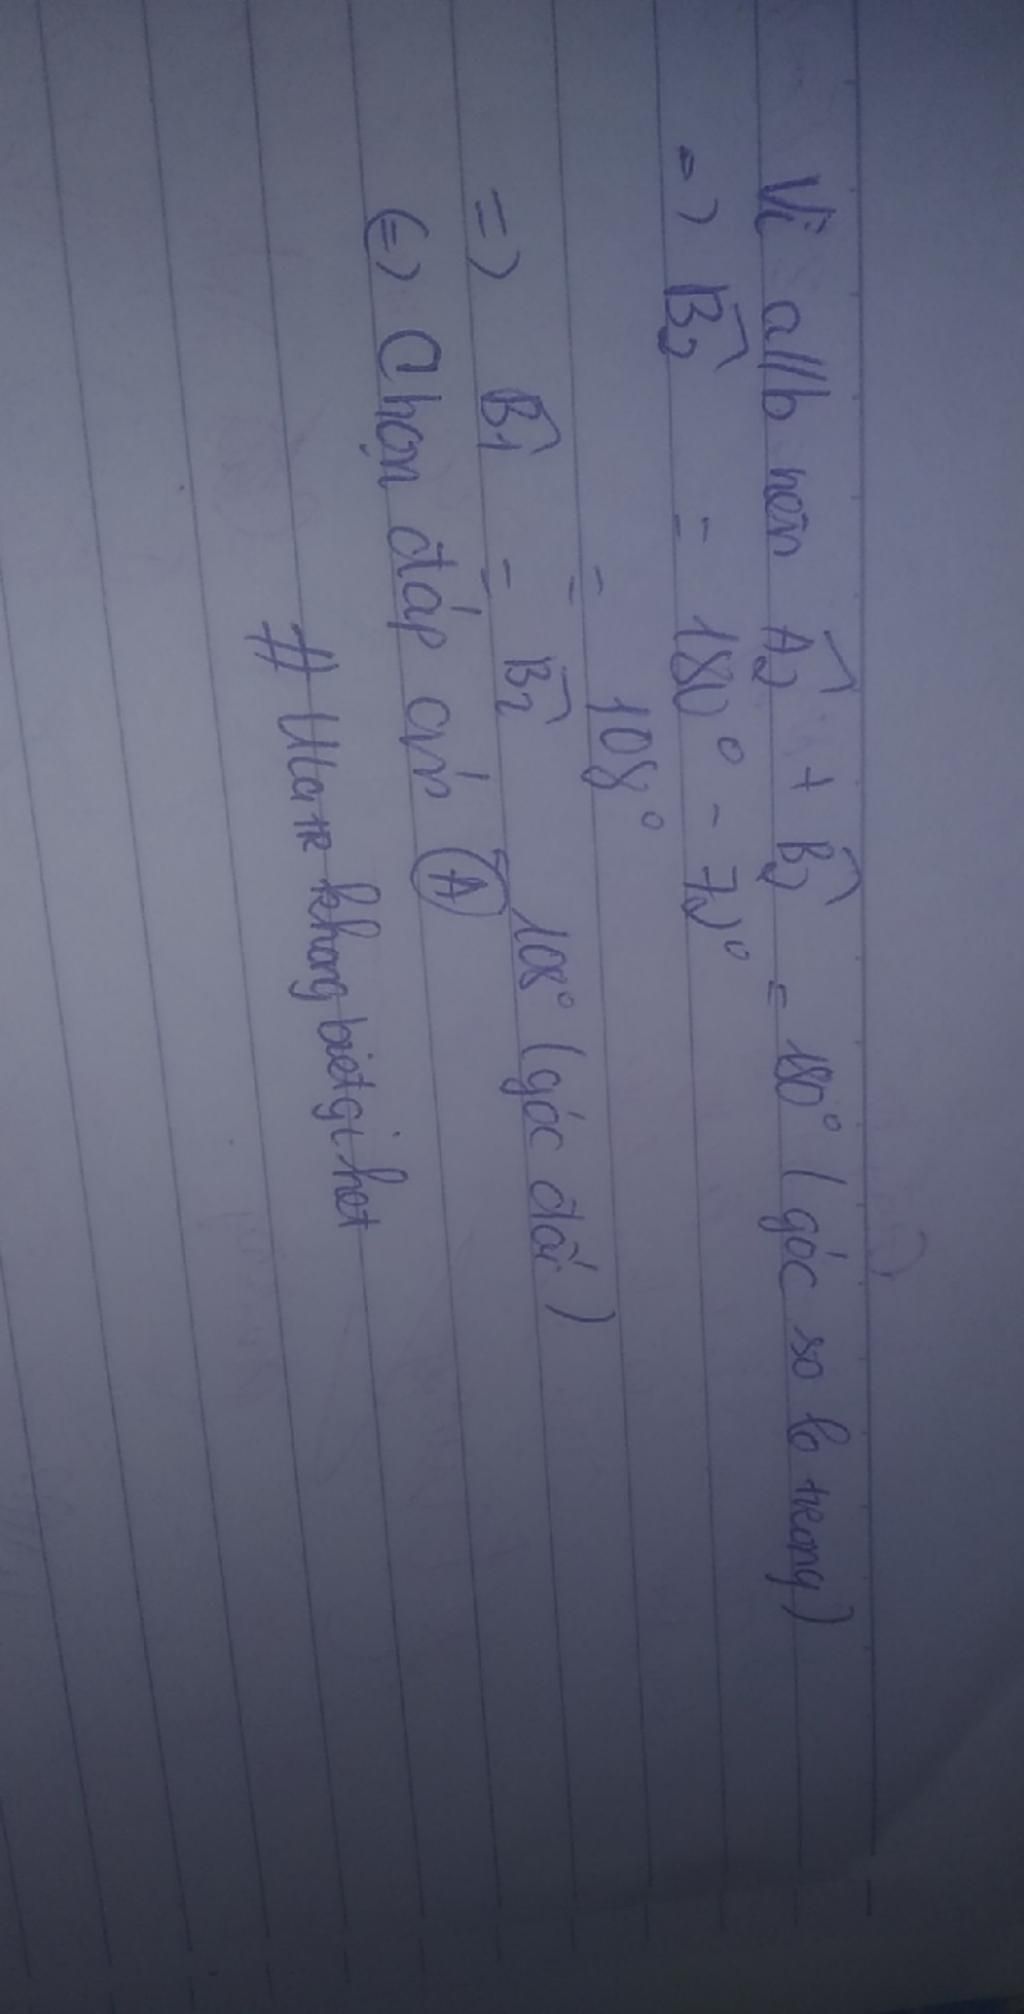 Vì a//b nên Â2 + B̂2 = 180° (góc so le trong)
=> B̂2 = 180° - 72°
= 108°
=> B̂1 = B̂2 = 108° (góc đối)
(=) Chọn đáp án A
# Ulatr khongbietgihet